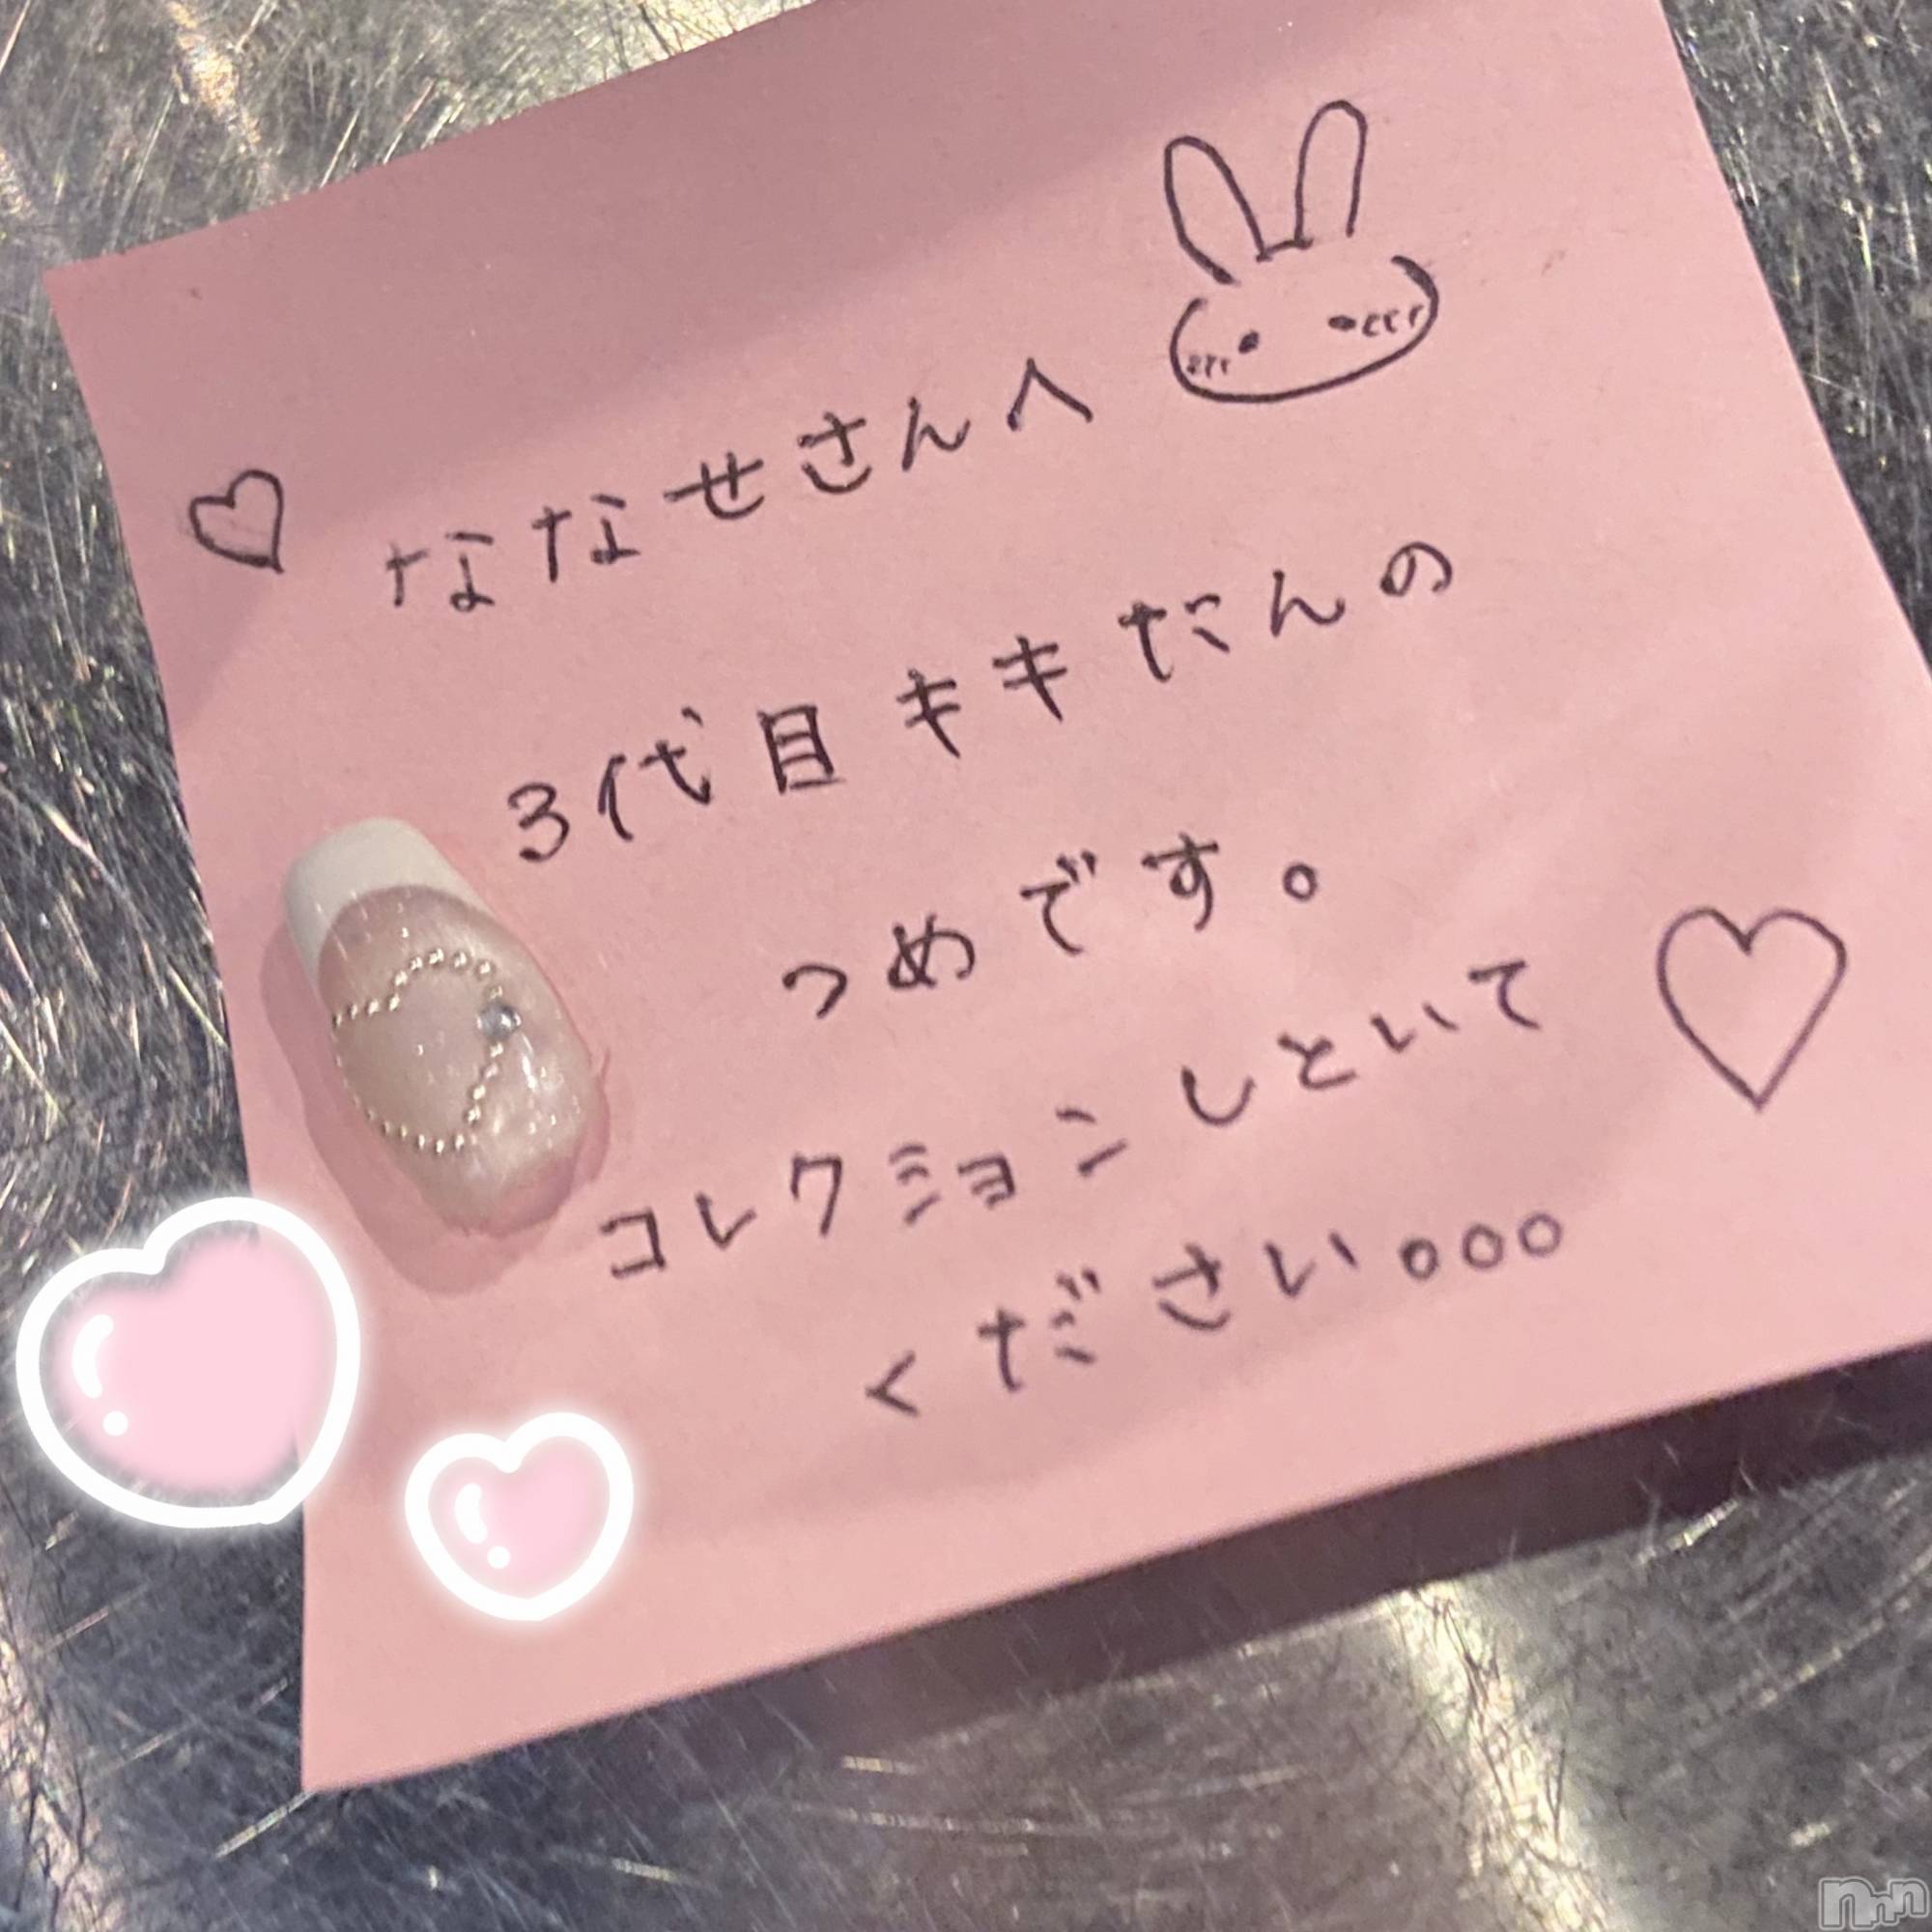 ななせさんへ
3代目キキたんの
つめです。
コレクションしといて
ください。。。
nnn